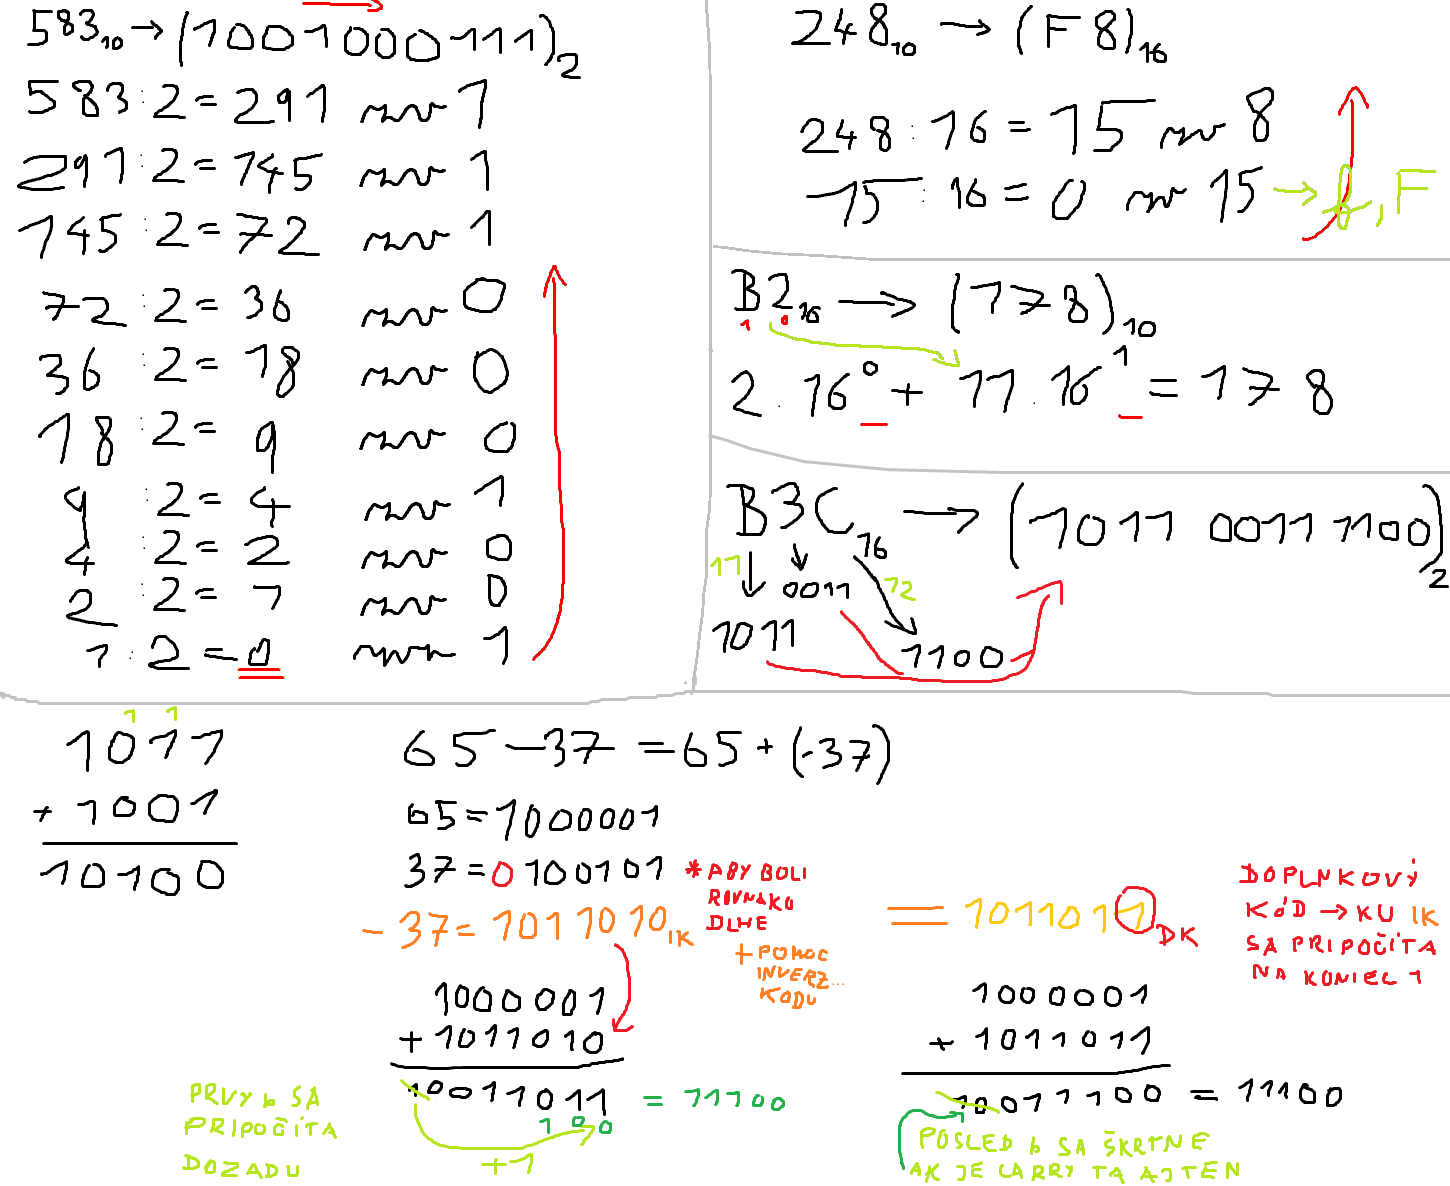 583₁₀ → (1001000111)₂
583 : 2 = 291 zv 1
291 : 2 = 145 zv 1
145 : 2 = 72 zv 1
72 : 2 = 36 zv 0
36 : 2 = 18 zv 0
18 : 2 = 9 zv 0
9 : 2 = 4 zv 1
4 : 2 = 2 zv 0
2 : 2 = 1 zv 0
1 : 2 = 0 zv 1
248₁₀ → (F8)₁₆
248 : 16 = 15 zv 8
15 : 16 = 0 zv 15 → f, F
B2₁₆ → (178)₁₀
1 0
2 . 16⁰ + 11 . 16¹ = 178
B3C₁₆ → (1011 0011 1100)₂
11 0011 12
1011 1100
1 1
1011
+ 1001
10100
65 - 37 = 65 + (-37)
65 = 1000001
37 = 0100101 * ABY BOLI
ROVNAKO
DLHE
- 37 = 1011010 IK
+ POMOC
INVERZ...
KODU
1000001
+ 1011010
10011011 = 11100
100
+1
PRVY b SA
PRIPOČÍTA
DOZADU
= 1011011 DK
DOPLNKOVÝ
KÓD → KU IK
SA PRIPOČÍTA
NA KONIEC 1
1000001
+ 1011011
10011100 = 11100
POSLED b SA ŠKRTNE
AK JE CARRY TA AJ TEN